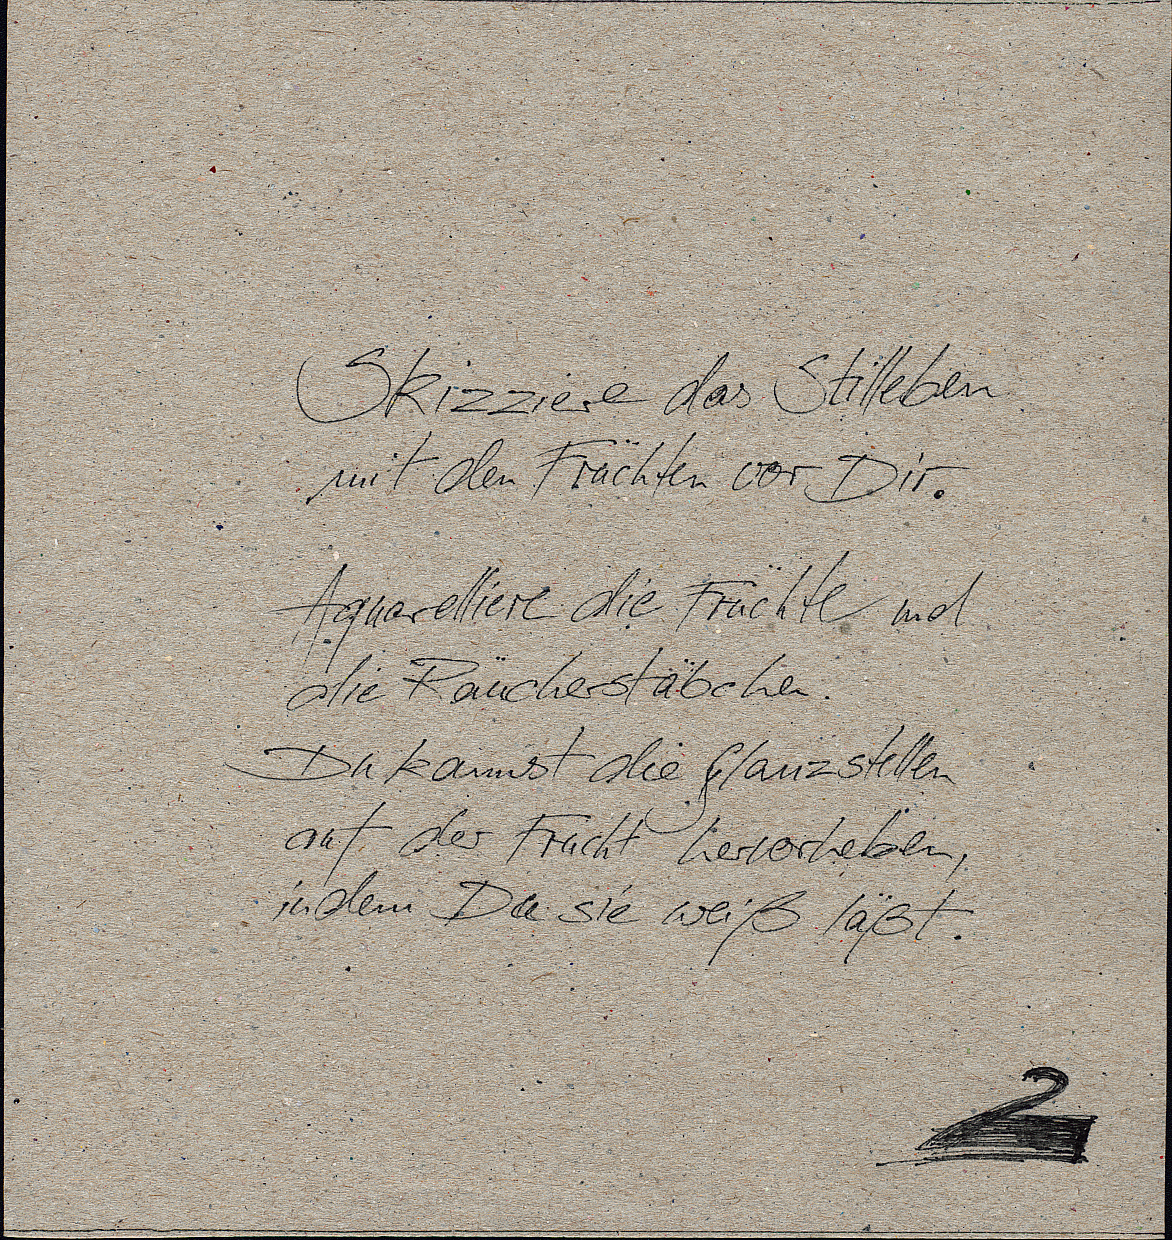 Skizziere das Stilleben
mit den Früchten vor Dir.
Aquarelliere die Früchte und
die Räucherstäbchen.
Du kannst die Glanzstellen
auf der Frucht hervorheben,
indem Du sie weiß läßt.
2